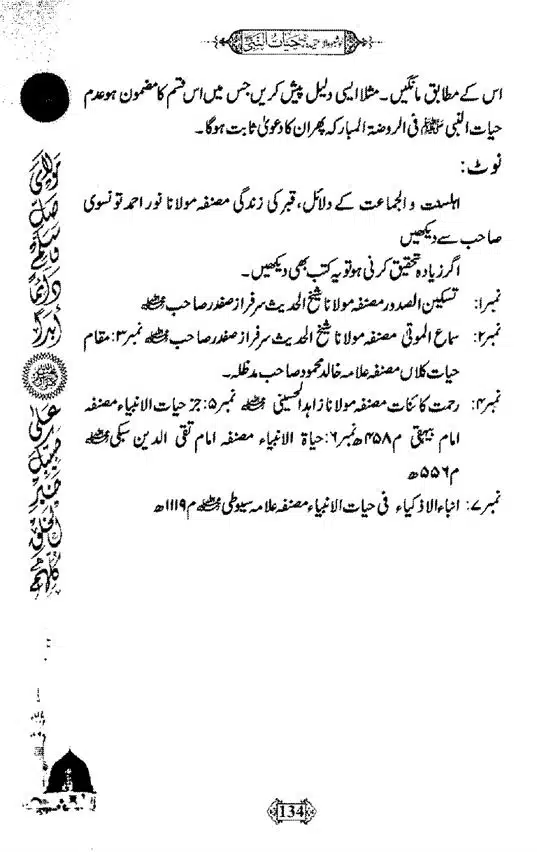 حیات النبی
اس کے مطابق مانگیں۔ مثلا ایسی دلیل پیش کریں جس میں اس قسم کا مضمون ہو عدم
حیات النبی ﷺ فی الروضۃ المبارکہ پھر ان کا دعویٰ ثابت ہوگا۔
نوٹ:
اہلسنت والجماعت کے دلائل، قبر کی زندگی مصنفہ مولانا نور احمد تونسوی
صاحب سے دیکھیں
اگر زیادہ تحقیق کرنی ہو تو یہ کتب بھی دیکھیں۔
نمبر۱: تسکین الصدور مصنفہ مولانا شیخ الحدیث سرفراز صفدر صاحب رحمۃ اللہ علیہ
نمبر۲: سماع الموتی مصنفہ مولانا شیخ الحدیث سرفراز صفدر صاحب رحمۃ اللہ علیہ نمبر۳: مقام
حیات کلاں مصنفہ علامہ خالد محمود صاحب مدظلہ۔
نمبر۴: رحمت کائنات مصنفہ مولانا زاہد الحسینی رحمۃ اللہ علیہ نمبر۵: جز حیات الانبیاء مصنفہ
امام بیہقی م۴۵۸ھ نمبر۶: حیاۃ الانبیاء مصنفہ امام تقی الدین سبکی رحمۃ اللہ علیہ
م۵۵۶ھ
نمبر۷: انباء الاذکیاء فی حیات الانبیاء مصنفہ علامہ سیوطی رحمۃ اللہ علیہ م۱۱۱۹ھ
مولای صل وسلم دائما أبدا
علی حبیبک خیر الخلق کلهم
134